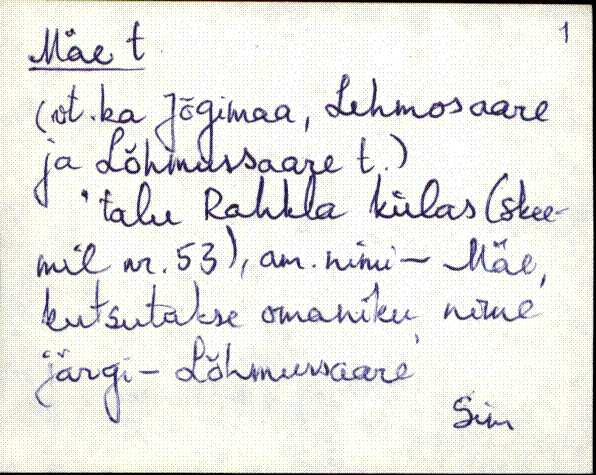 1
Mäe t
(vt. ka Jõgimaa, Lehmosaare
ja Lõhmussaare t.)
talu Rahkla külas (skee-
mil nr. 53), am. nimi - Mäe,
kutsutakse omaniku nime
järgi - Lõhmussaare
Sim